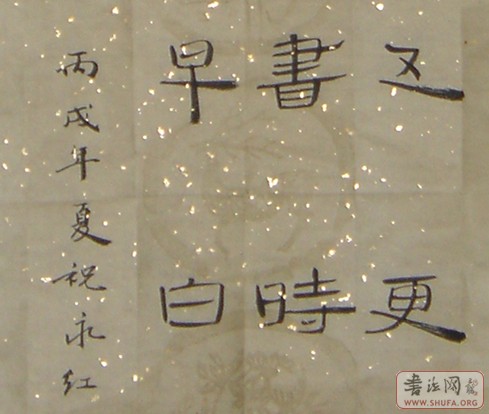 五更
書時
早白
丙戌年夏祝永红
書法网
WWW.SHUFA.ORG